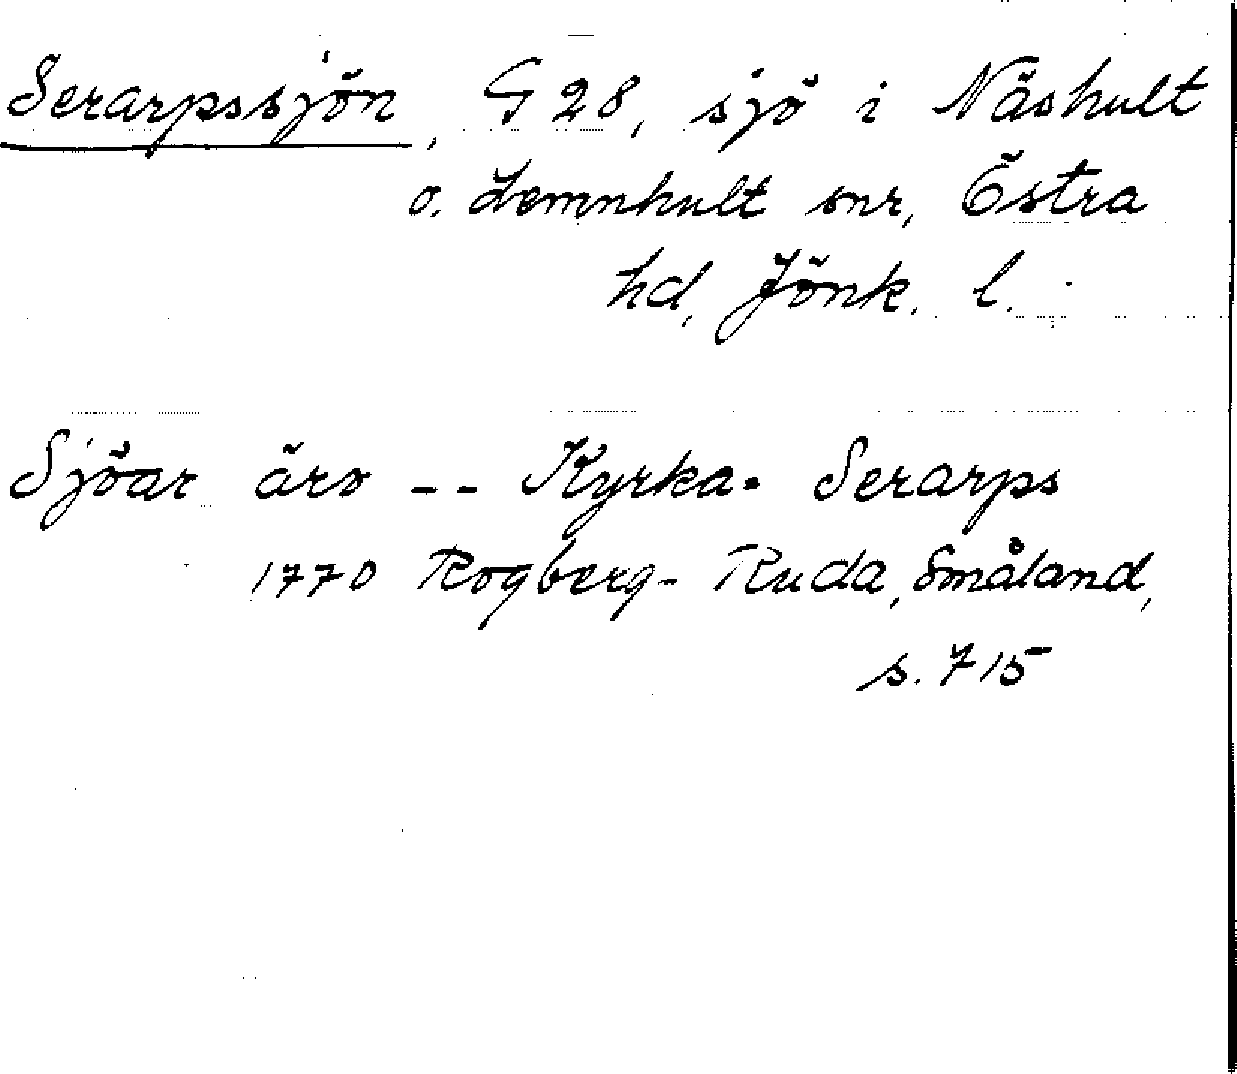 Serarpssjön, G 28, sjö i Näshult
o. Lemnhult snr, Östra
hd, Jönk. l.
Sjöar äro -- Kyrka- Serarps
1770 Rogberg-Ruda, Småland,
s. 715